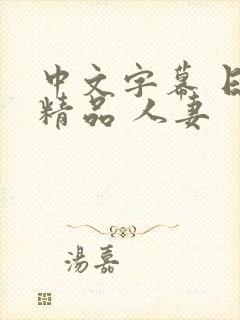 中文字幕 日
精品 人妻
湯嘉